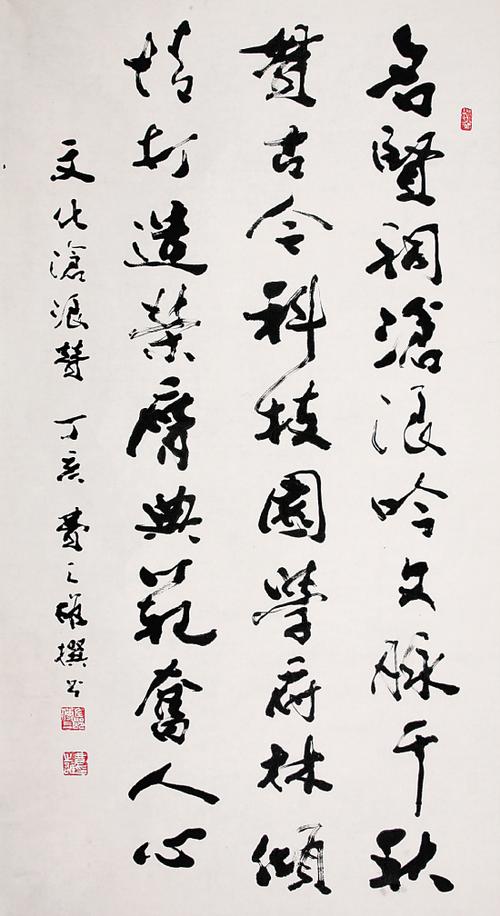 名賢祠滄浪吟文脉千秋
贊古今科技園學府林傾
情打造榮膺典範奮人心
文化滄浪贊 丁亥 費之雄撰书